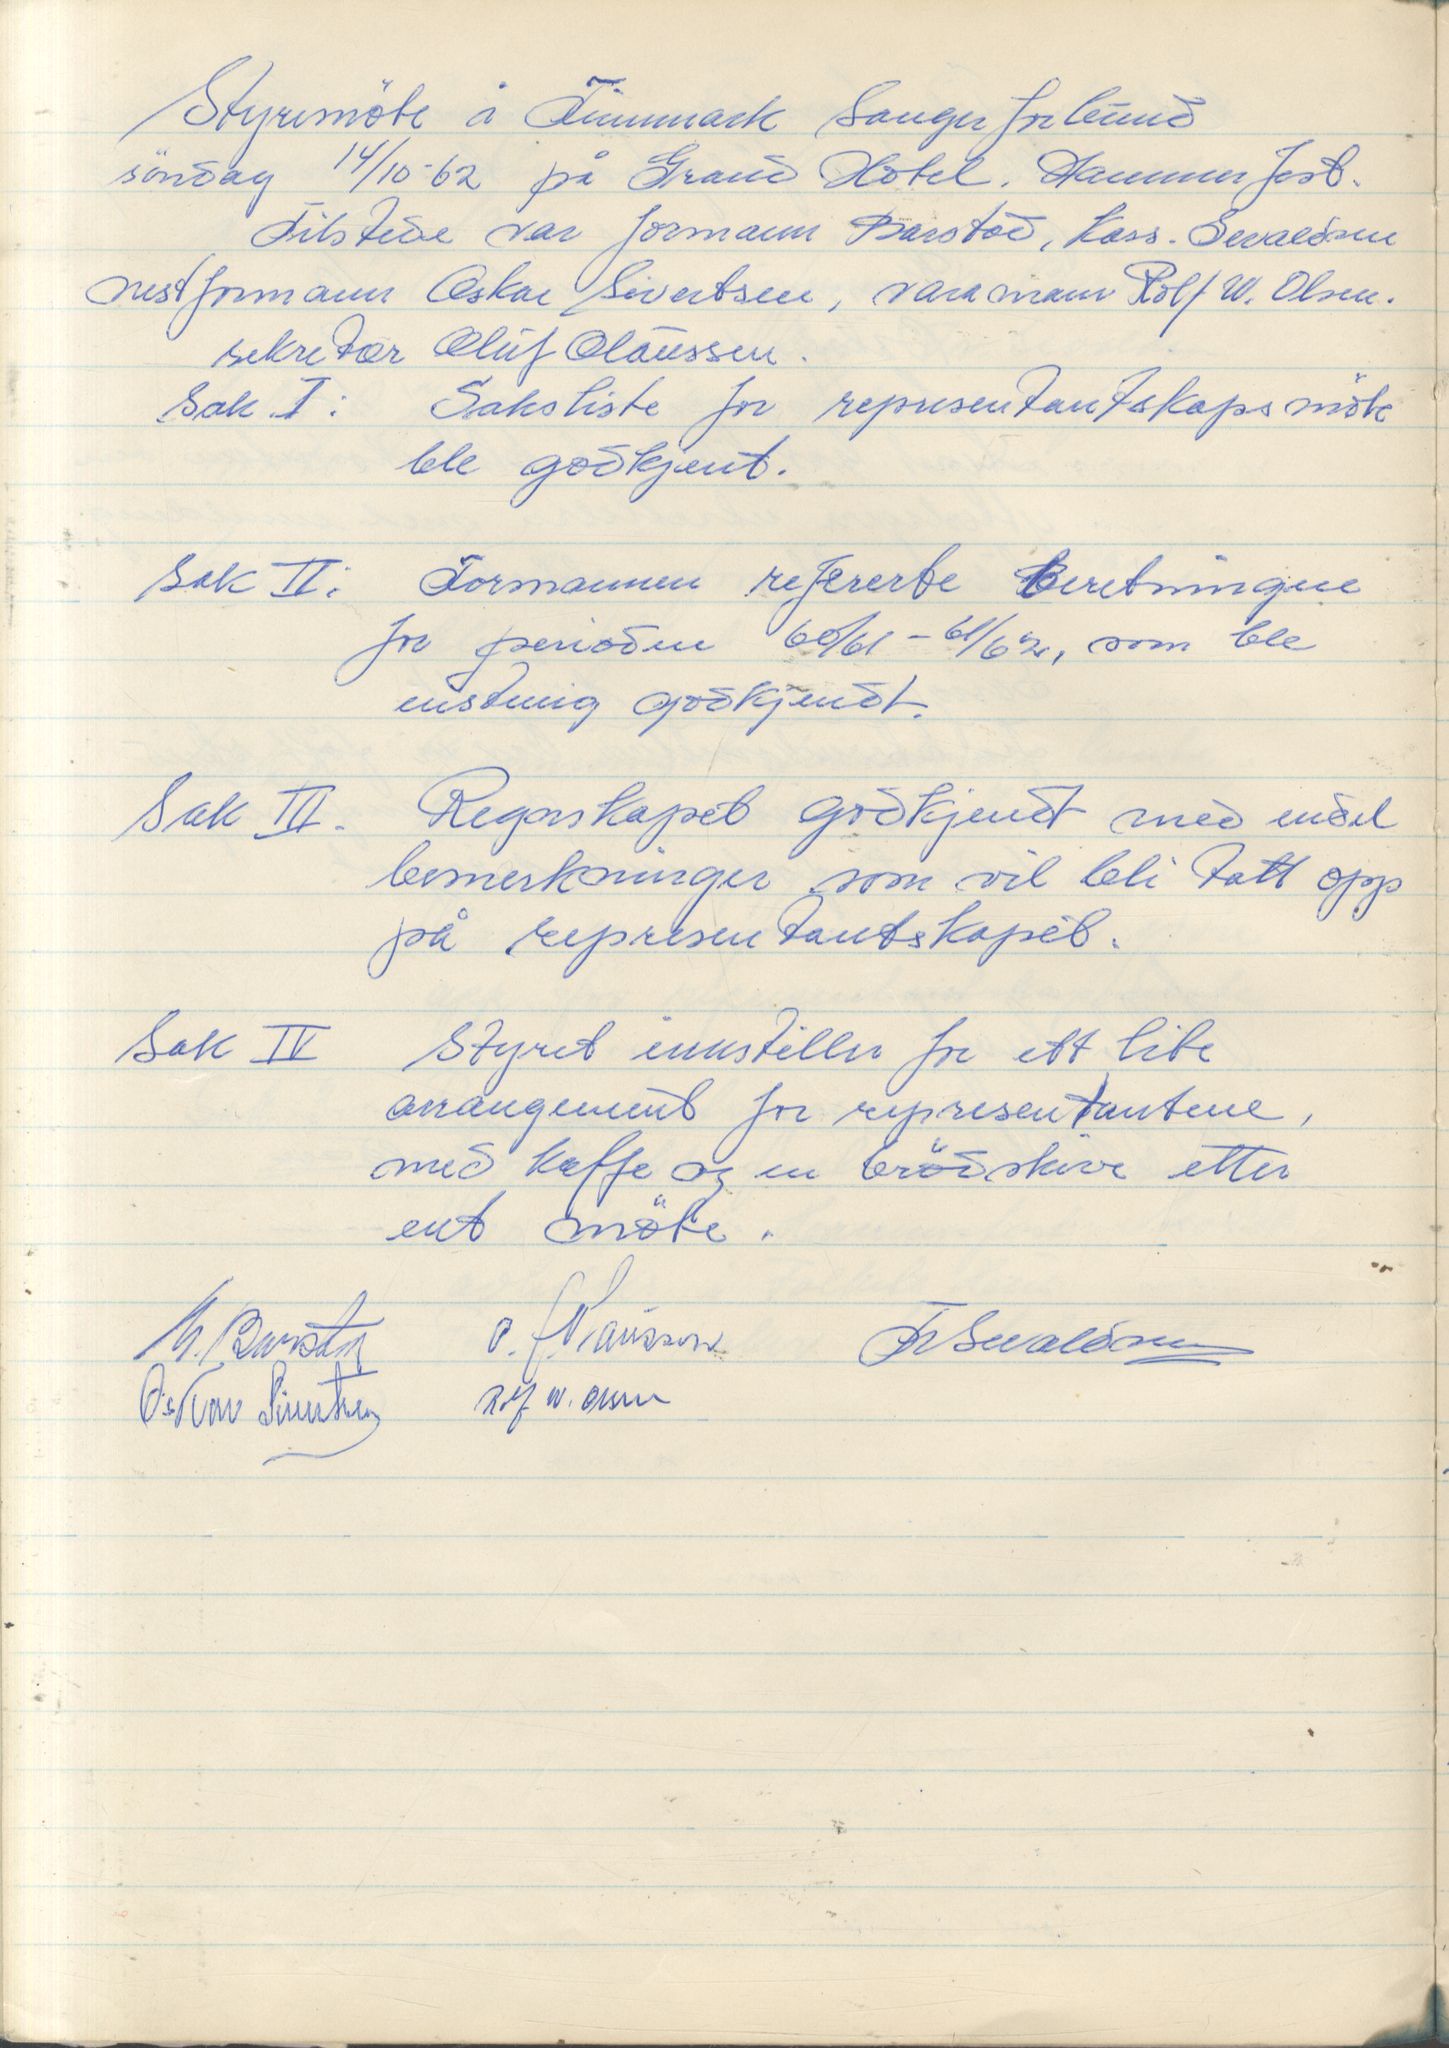 Styremöte i Finnmark Sangerforbund
söndag 14/10-62 på Grand Hotel. Hammerfest.
Tilstede var formann Barstad, Kass. Sevaldsen
nestformann Oskar Sivertsen, varamann Rolf W. Olsen.
sekretær Oluf Olaussen.
Sak I: Saksliste for representantskapsmöte
ble godkjent.
Sak II: Formannen refererte Beretningene
for perioden 60/61 - 61/62, som ble
enstmig godkjendt.
Sak III. Regnskapet godkjendt med endel
bemerkninger som vil bli tatt opp
på representantskapet.
Sak IV Styret innstiller for ett lite
arrangement for representantene,
med kaffe og en brödskive etter
ent möte.
Barstad O. Olaussen Fr Sevaldsen
Oskar Sivertsen Rolf W. Olsen